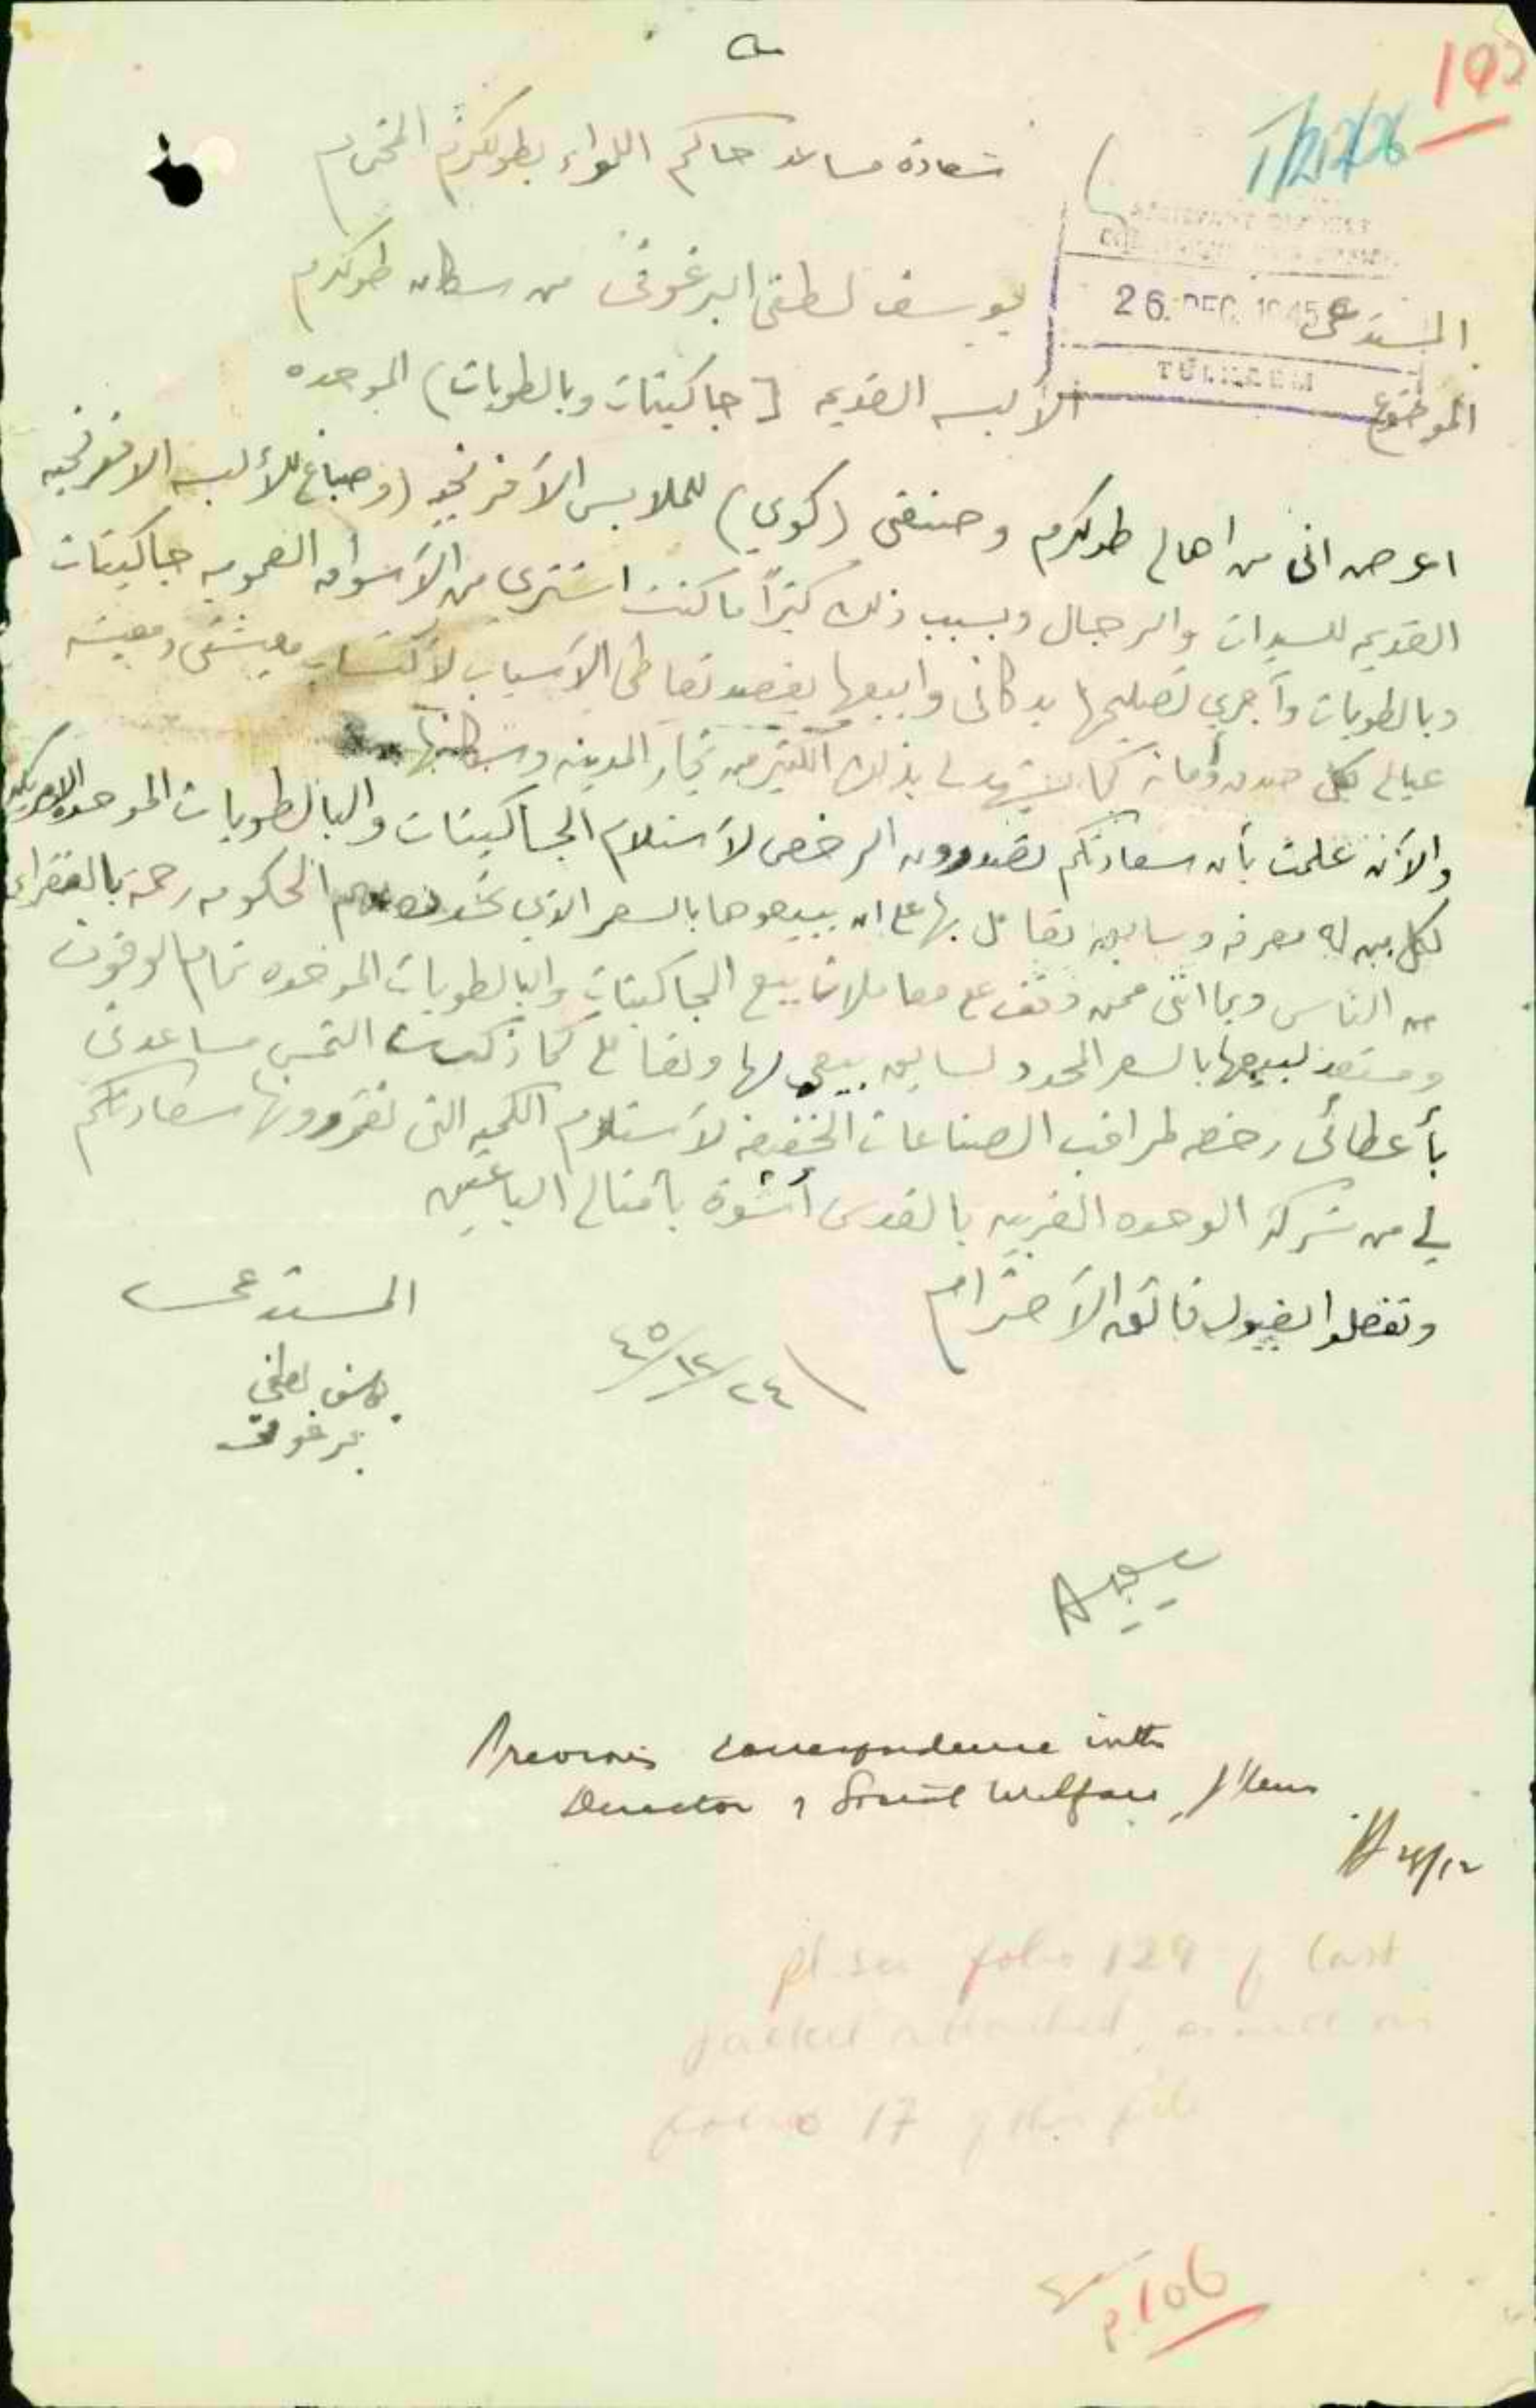 105
1/21/26
سعادة مساعد حاكم اللواء بطولكرم المحترم
26 DEC 1945
TULKAREM
المستدعي يوسف لطفي البرغوثي من سكان طولكرم
الموضوع الألبسه القديمه [جاكيتات وبالطويات) الموحده
اعرض اني من اهالي طولكرم وصنعتي (كوي) للملابس الأفرنجيه (وصباغ للألبسه الافرنجيه
القديمه للسيدات والرجال وبسبب ذلك كثيراً ما كنت اشتري من الأسواق العموميه جاكيتات
وبالطويات وأجري تصليحها بدكاني وابيعها بقصد تعاطي الاسباب لاكتساب معيشتي ومعيشة
عيالي بكل صدق وأمانه كما يشهد لي بذلك الكثير من تجار المدينه وسكانها
والآن علمت بأن سعادتكم تصدرون الرخص لأستلام الجاكيتات والبالطويات الموحده الامريكيه
لكل من له معرفه وسابق تعامل بها على ان يبيعوها بالسعر الذي تحدده الحكومه رحمة بالفقراء
من الناس وبما انني ممن وقف على معاملات بيع الجاكيتات والبالطويات الموحده تمام الوقوف
ومستعد لبيعها بالسعر المحدد لسابق بيعي لها وتعاملي كما ذكرت التمس مساعدتي
بأعطائي رخصه لمراقب الصناعات الخفيفه لأستلام الكميه التي تقررونها سعادتكم
لي من شركة الوحده العربيه بالقدس أسوة بأمثالي البائعين
وتفضلوا بقبول فائق الأحترام
٢٤/١٢/٤٥
المستدعي
يوسف لطفي
برغوثي
Previous correspondence with
Director of Social Welfare, J'lem
28/12
pl. see folio 129 of last
jacket attached, as well as
folio 17 of this file
P.106